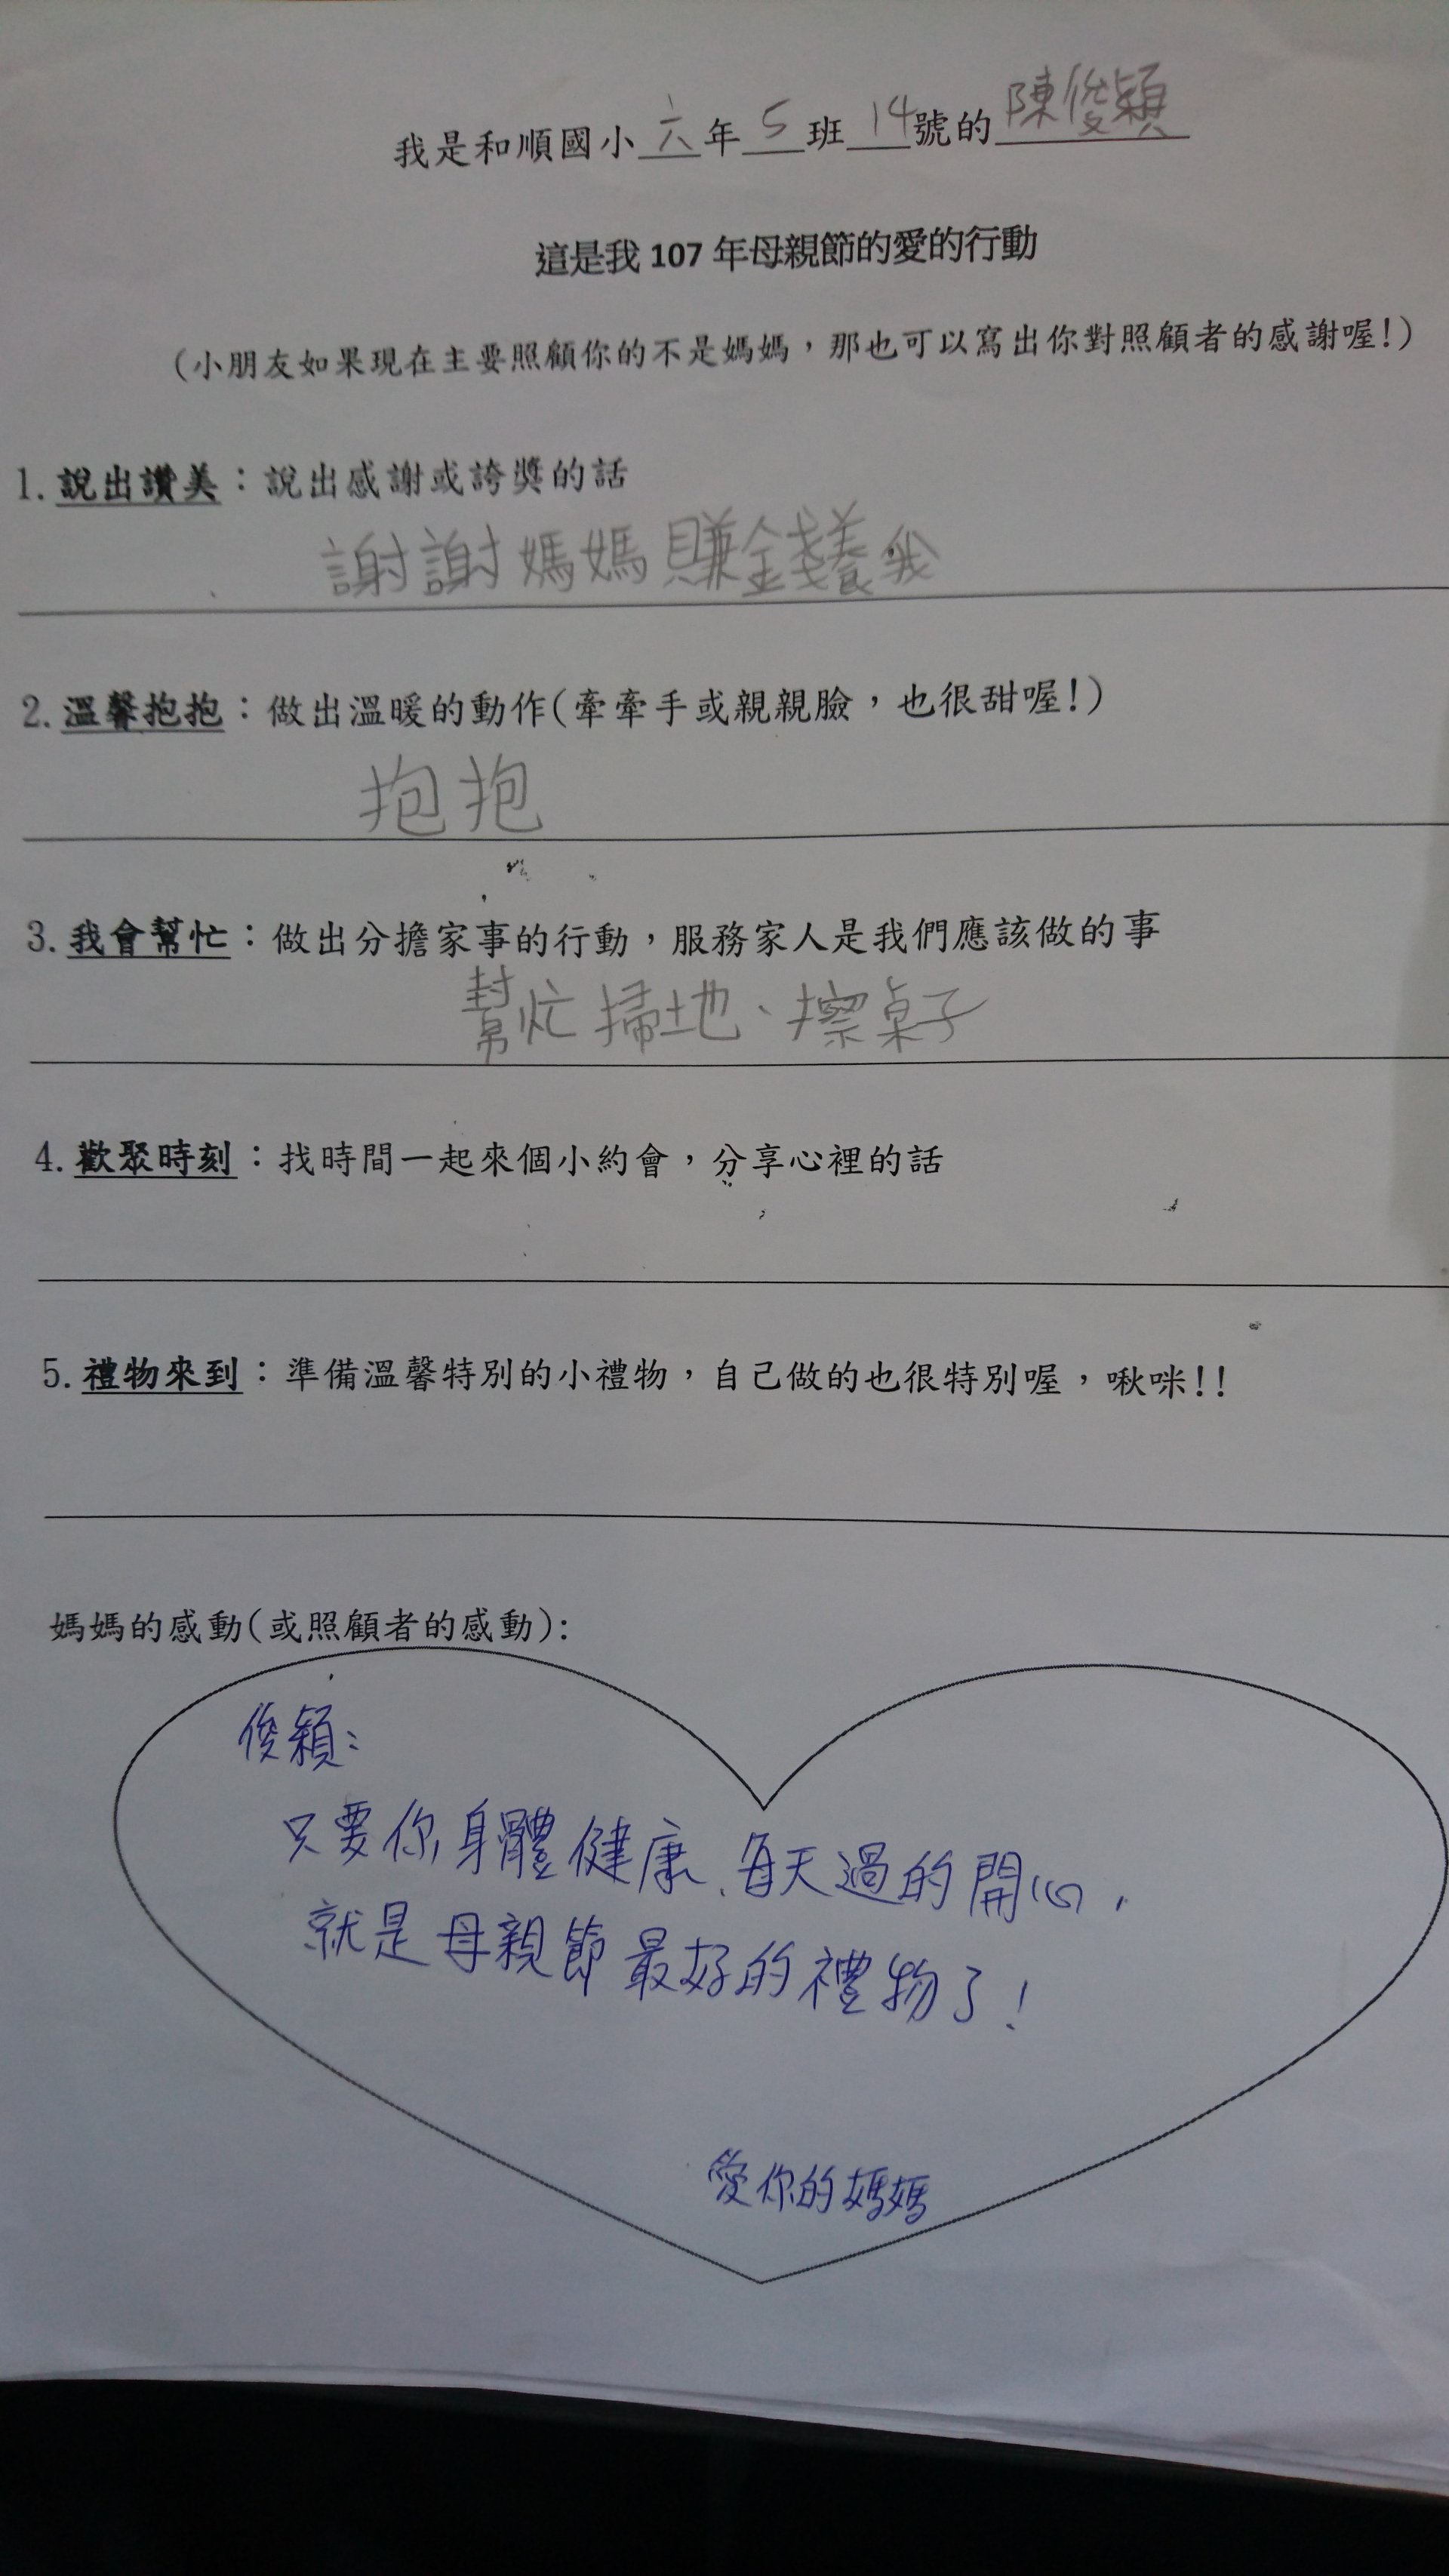 我是和順國小六年5班14號的陳俊穎
這是我107年母親節的愛的行動
(小朋友如果現在主要照顧你的不是媽媽，那也可以寫出你對照顧者的感謝喔!)
1.說出讚美：說出感謝或誇獎的話
謝謝媽媽賺錢養我
2.溫馨抱抱：做出溫暖的動作(牽牽手或親親臉，也很甜喔!)
抱抱
3.我會幫忙：做出分擔家事的行動，服務家人是我們應該做的事
幫忙掃地、擦桌子
4.歡聚時刻：找時間一起來個小約會，分享心裡的話
5.禮物來到：準備溫馨特別的小禮物，自己做的也很特別喔，啾咪!!
媽媽的感動(或照顧者的感動):
俊穎：
只要你身體健康、每天過的開心，
就是母親節最好的禮物了！
愛你的媽媽